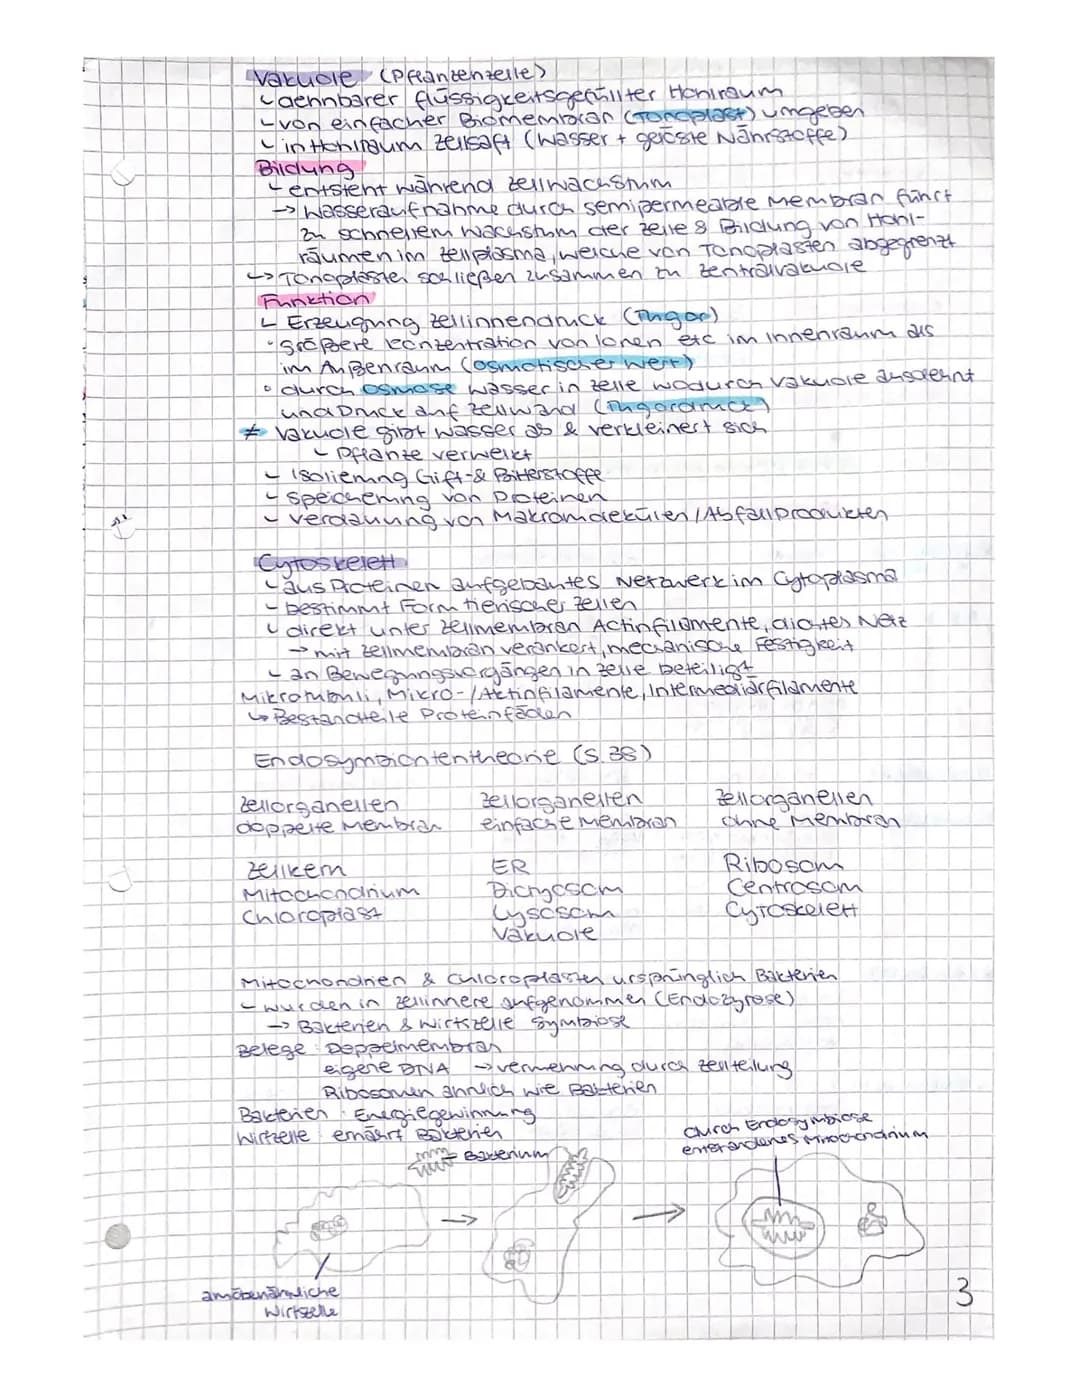 Vakuole (Pflanzenzelle)
↳ dehnbarer flüssigkeitsgefüllter Hohlraum
↳ von einfacher Biomembran (Tonoplast) umgeben
↳ in Hohlraum Zellsaft (Wasser + gelöste Nährstoffe)
Bildung
↳ entsteht während Zellwachstum
→ Wasseraufnahme durch semipermeable Membran führt
zu schnellem Wachstum der Zelle & Bildung von Hohl-
räumen im Zellplasma, welche von Tonoplasten abgegrenzt
↳ Tonoplasten schließen zusammen zu Zentralvakuole
Funktion
↳ Erzeugung Zellinnendruck (Turgor)
· größere Konzentration von Ionen etc im Innenraum als
im Außenraum (osmotischer Wert)
° durch Osmose Wasser in Zelle wodurch Vakuole ausdehnt
und Druck auf Zellwand (Turgordruck)
≠ Vakuole gibt Wasser ab & verkleinert sich
↳ Pflanze verwelkt
↳ Isolierung Gift- & Bitterstoffe
↳ Speicherung von Proteinen
↳ Verdauung von Makromolekülen / Abfallprodukten
Cytoskelett
↳ aus Proteinen aufgebautes Netzwerk im Cytoplasma
↳ bestimmt Form tierischer Zellen
↳ direkt unter Zellmembran Actinfilamente, dichtes Netz
→ mit Zellmembran verankert, mechanische Festigkeit
↳ an Bewegungsvorgängen in Zelle beteiligt
Mikrotubuli, Mikro-/Aktinfilamente, Intermediärfilamente
↳ Bestandteile Proteinfäden
Endosymbiontentheorie (S. 38)
Zellorganellen Zellorganellen Zellorganellen
doppelte Membran einfache Membran ohne Membran
Zellkern ER Ribosom
Mitochondrium Dictyosom Centrosom
Chloroplast Lysosom Cytoskelett
Vakuole
Mitochondrien & Chloroplasten ursprünglich Bakterien
↳ wurden in Zellinnere aufgenommen (Endozytose)
→ Bakterien & Wirtszelle Symbiose
Belege: Doppelmembran
eigene DNA → Vermehrung durch Zellteilung
Ribosomen ähnlich wie Bakterien
Bakterien: Energiegewinnung
Wirtzelle: ernährt Bakterien
durch Endosymbiose
entstandenes Mitochondrium
Bakterium
→ →
amöbenähnliche
Wirtszelle
3